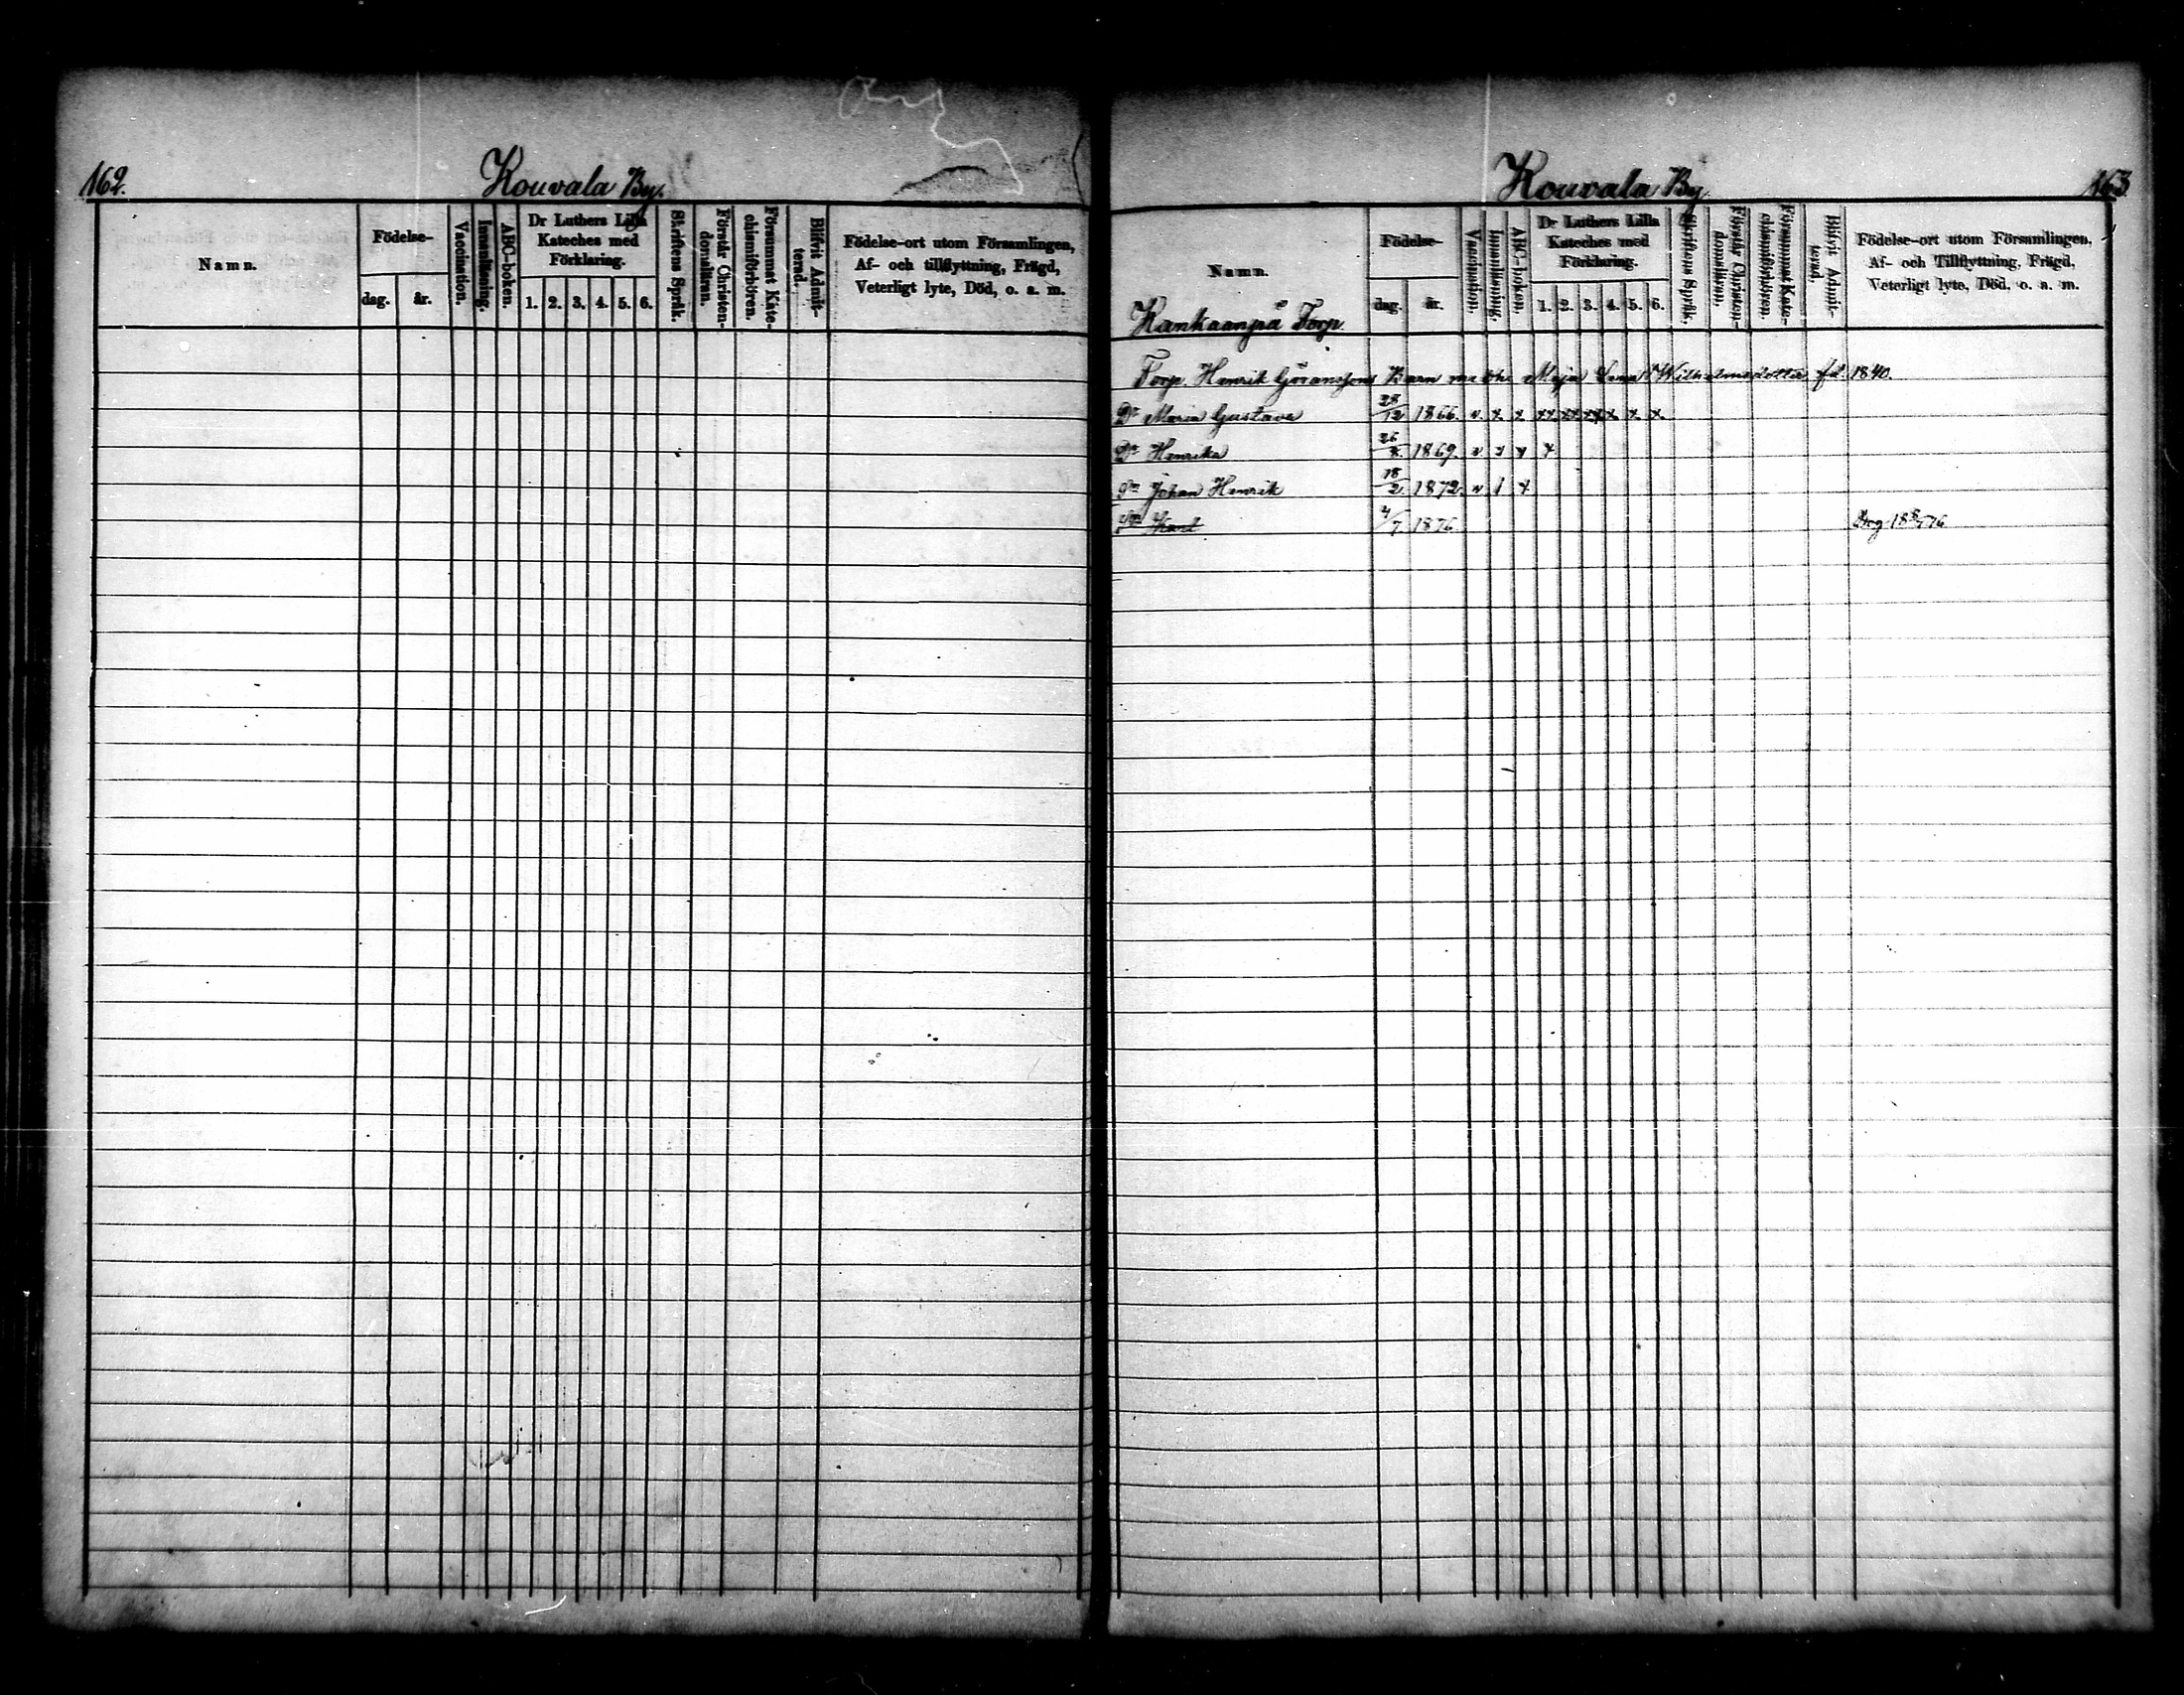 162.
Kouvala By.
Namn.
Födelse-
dag.
år.
Vaccination.
Innanläsning.
ABC-boken.
Dr Luthers Lilla
Kateches med
Förklaring.
1. 2. 3. 4. 5. 6.
Skriftens Språk.
Förstår Christen-
domsläran.
Försummat Kate-
chismiförhören.
Blifvit Admit-
terad.
Födelse-ort utom Församlingen,
Af- och tillflyttning, Frägd,
Veterligt lyte, Död, o. a. m.
Kouvala By
163
Namn.
Födelse-
dag.
år.
Vaccination.
Innanläsning.
ABC-boken.
Dr Luthers Lilla
Kateches med
Förklaring.
1. 2. 3. 4. 5. 6.
Skriftens Språk.
Förstår Christen-
domsläran.
Försummat Kate-
chismiförhören.
Blifvit Admit-
terad.
Födelse-ort utom Församlingen,
Af- och Tillflyttning, Frägd,
Veterligt lyte, Död, o. a. m.
Kankaanpä Torp.
Torp. Henrik Göranssons Barn med h. Maja Lena Wilhelmsdotter fd 1840.
Dr Maria Gustava 28/12 1866. v x x xx xx xx x x x
Dr Henrika 26 1869. v x x x
Sn Johan Henrik 18/2 1872. v / x
Sn Karl 4/7 1876